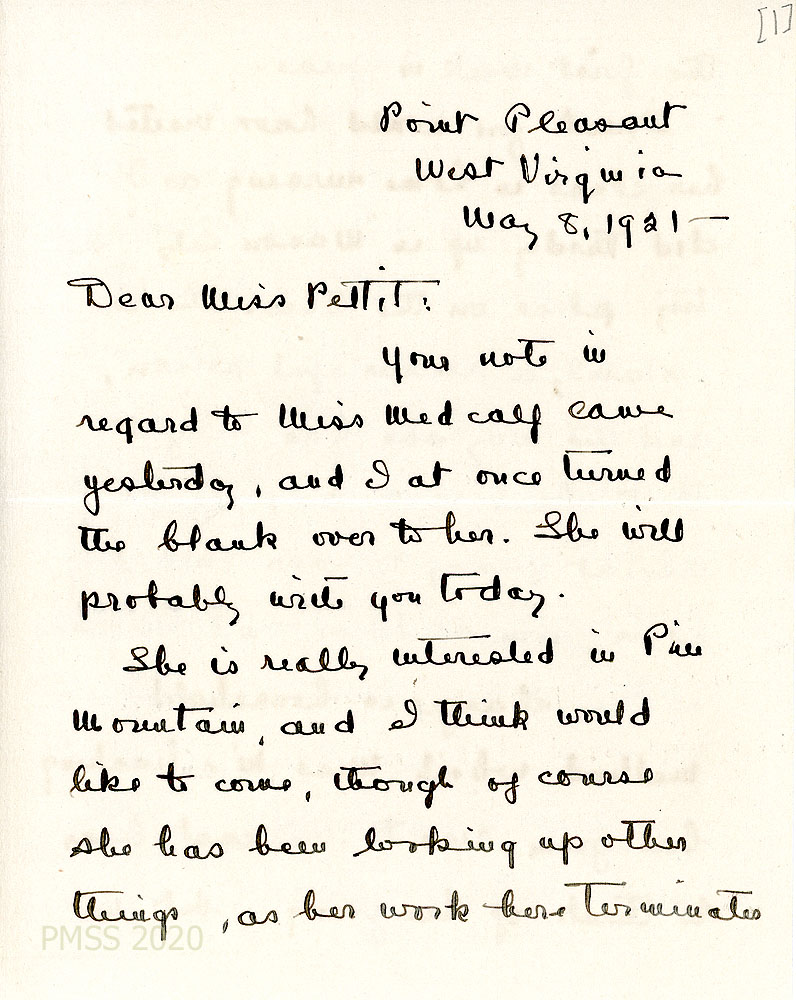 [1]
Point Pleasant
West Virginia
May 8, 1921—
Dear Miss Pettit:
Your note in
regard to Miss Medcalf came
yesterday, and I at once turned
the blank over to her. She will
probably write you today.
She is really interested in Pine
Mountain, and I think would
like to come, though of course
she has been looking up other
things, as her work here terminates
PMSS 2020